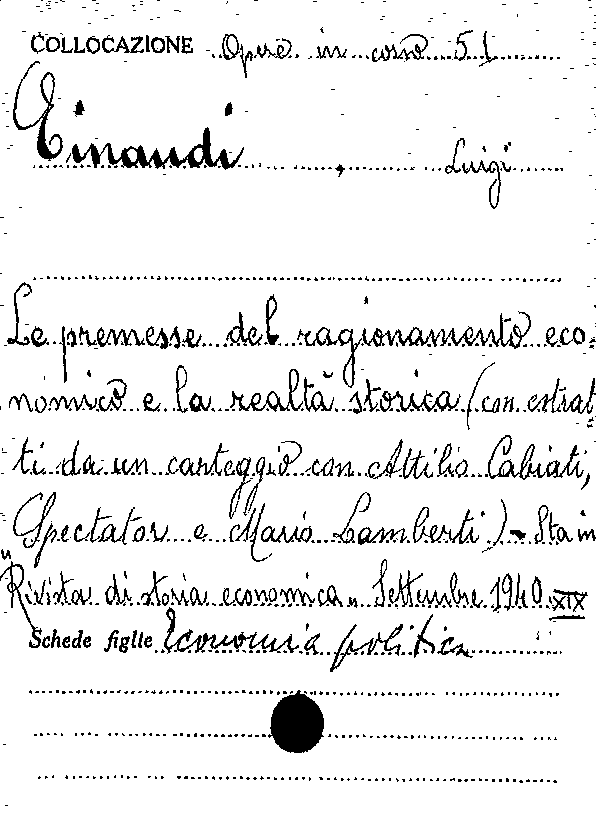 COLLOCAZIONE Opere in corso 51
Einaudi , Luigi
Le premesse del ragionamento eco-
nomico e la realtà storica (con estrat-
ti da un carteggio con Attilio Cabiati,
Spectator e Mario Lamberti) - Sta in
"Rivista di storia economica" Settembre 1940 XIX
Schede figlie Economia politica